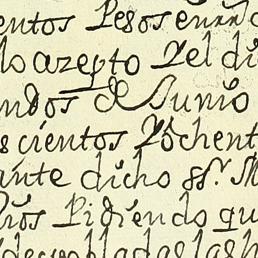 entos Pesos en
lo azepto Y el di
ndos de Junio
scientos Yochent
ante dicho ssr. M
Pidiendo qu